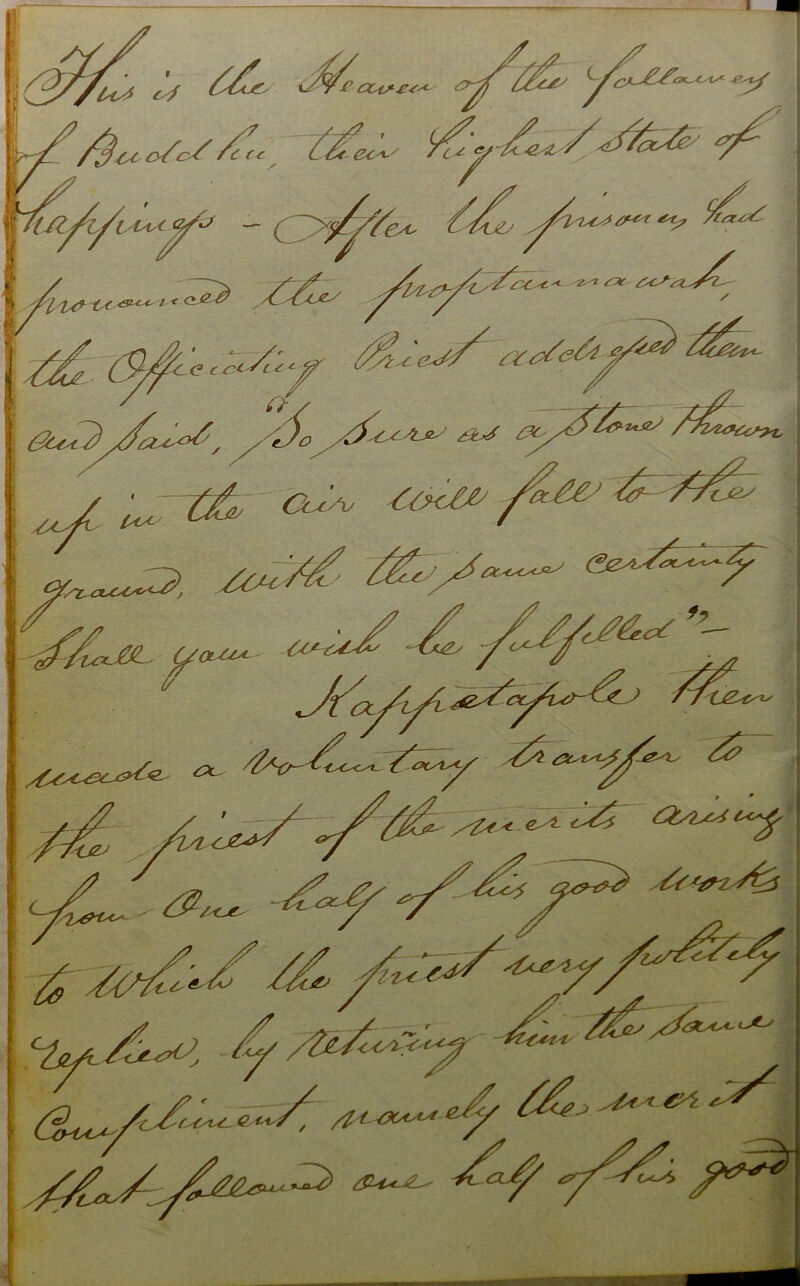 This is the Heaven of the followers
of Buddhu, their highest State of
happiness - After the prisoners had
pronounced the proptannawah,
the Officiating Priest addressed them
and said, "So sure as a stone thrown
up in the air will fall to the
ground, with the same certainty
Shall your wish be fulfilled" -
Kappetapole then
made a voluntary transfer to
the priest of the merits arising
from One half of his good works
to which the priest very politely
replied, by returing him the same
Compliment, namely the merit
that followed one half of his good